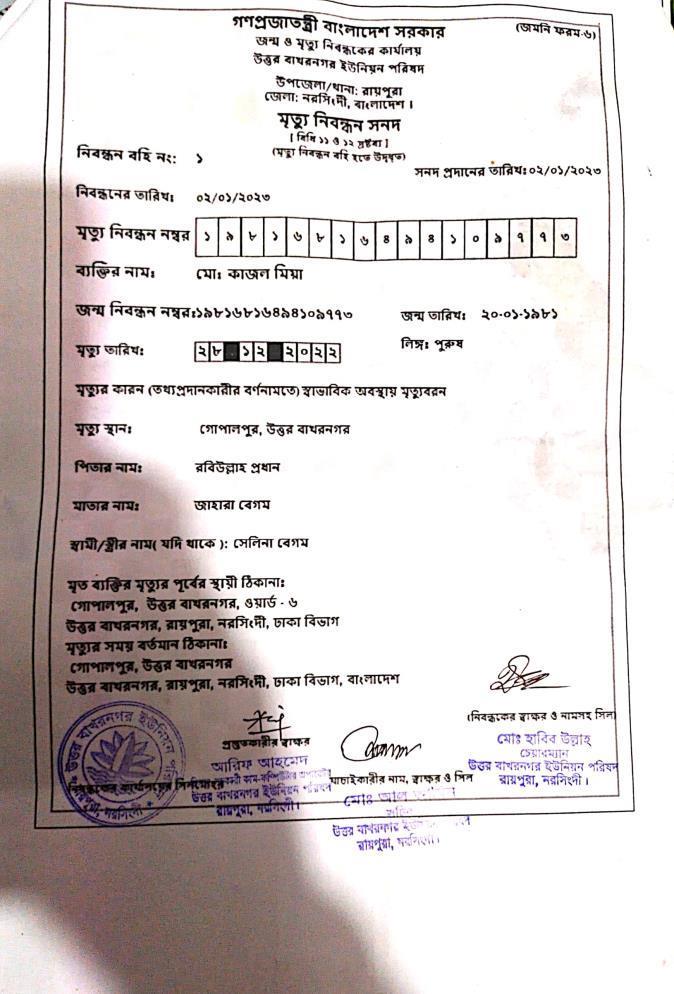 গণপ্রজাতন্ত্রী বাংলাদেশ সরকার
(জমনি ফরম-৬)
জন্ম ও মৃত্যু নিবন্ধকের কার্যালয়
উত্তর বাখরনগর ইউনিয়ন পরিষদ
উপজেলা/থানা: রায়পুরা
জেলা: নরসিংদী, বাংলাদেশ ।
মৃত্যু নিবন্ধন সনদ
[ বিধি ১১ ও ১২ দ্রষ্টব্য ]
(মৃত্যু নিবন্ধন বহি হতে উদ্ধৃত)
নিবন্ধন বহি নং: ১
সনদ প্রদানের তারিখ: ০২/০১/২০২৩
নিবন্ধনের তারিখ: ০২/০১/২০২৩
মৃত্যু নিবন্ধন নম্বর ১ ৯ ৮ ১ ৬ ৮ ১ ৬ ৪ ৯ ৪ ১ ০ ৯ ৭ ৭ ৩
ব্যক্তির নাম: মো: কাজল মিয়া
জন্ম নিবন্ধন নম্বর:১৯৮১৬৮১৬৪৯৪১০৯৭৭৩ জন্ম তারিখ: ২০-০১-১৯৮১
মৃত্যু তারিখ: ২৮ ১২ ২০২২ লিঙ্গ: পুরুষ
মৃত্যুর কারন (তথ্যপ্রদানকারীর বর্ণনামতে) স্বাভাবিক অবস্থায় মৃত্যুবরন
মৃত্যু স্থান: গোপালপুর, উত্তর বাখরনগর
পিতার নাম: রবিউল্লাহ প্রধান
মাতার নাম: জাহারা বেগম
স্বামী/স্ত্রীর নাম( যদি থাকে ): সেলিনা বেগম
মৃত ব্যক্তির মৃত্যুর পূর্বের স্থায়ী ঠিকানা:
গোপালপুর, উত্তর বাখরনগর, ওয়ার্ড - ৬
উত্তর বাখরনগর, রায়পুরা, নরসিংদী, ঢাকা বিভাগ
মৃত্যুর সময় বর্তমান ঠিকানা:
গোপালপুর, উত্তর বাখরনগর
উত্তর বাখরনগর, রায়পুরা, নরসিংদী, ঢাকা বিভাগ, বাংলাদেশ
(নিবন্ধকের স্বাক্ষর ও নামসহ সিল)
মোঃ হাবিব উল্লাহ
চেয়ারম্যান
উত্তর বাখরনগর ইউনিয়ন পরিষদ
রায়পুরা, নরসিংদী ।
প্রস্তুতকারীর স্বাক্ষর
আরিফ আহমেদ
উত্তর বাখরনগর ইউনিয়ন পরিষদ
রায়পুরা, নরসিংদী।
যাচাইকারীর নাম, স্বাক্ষর ও সিল
মোঃ
উত্তর বাখরনগর
রায়পুরা, নরসিংদী।
উত্তর বাখরনগর ইউনিয়ন পরিষদ
রায়পুরা, নরসিংদী
নিবন্ধকের কার্যালয়ের সিলমোহর